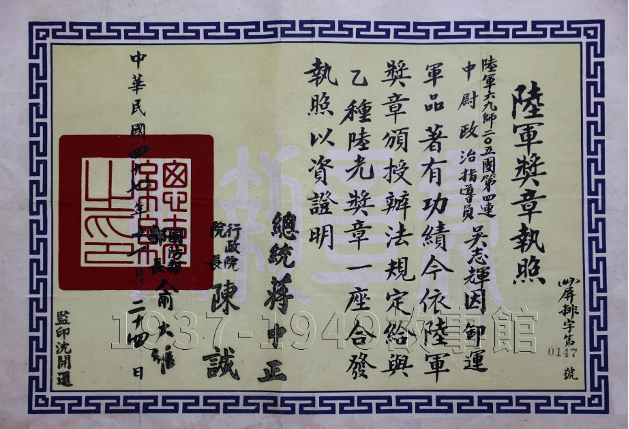 陸軍獎章執照
屏排字第0147號
陸軍六九師二〇五團第四連
中尉政治指導員
吳志輝因卸運
軍品著有功績今依陸軍
獎章頒授辦法規定給與
乙種陸光獎章一座合發
執照以資證明
總統蔣中正
行政院
院長
陳誠
國防部
部長
俞大維
中華民國四十七年十一月二十四日
監印沈開運
1937-1949故事館